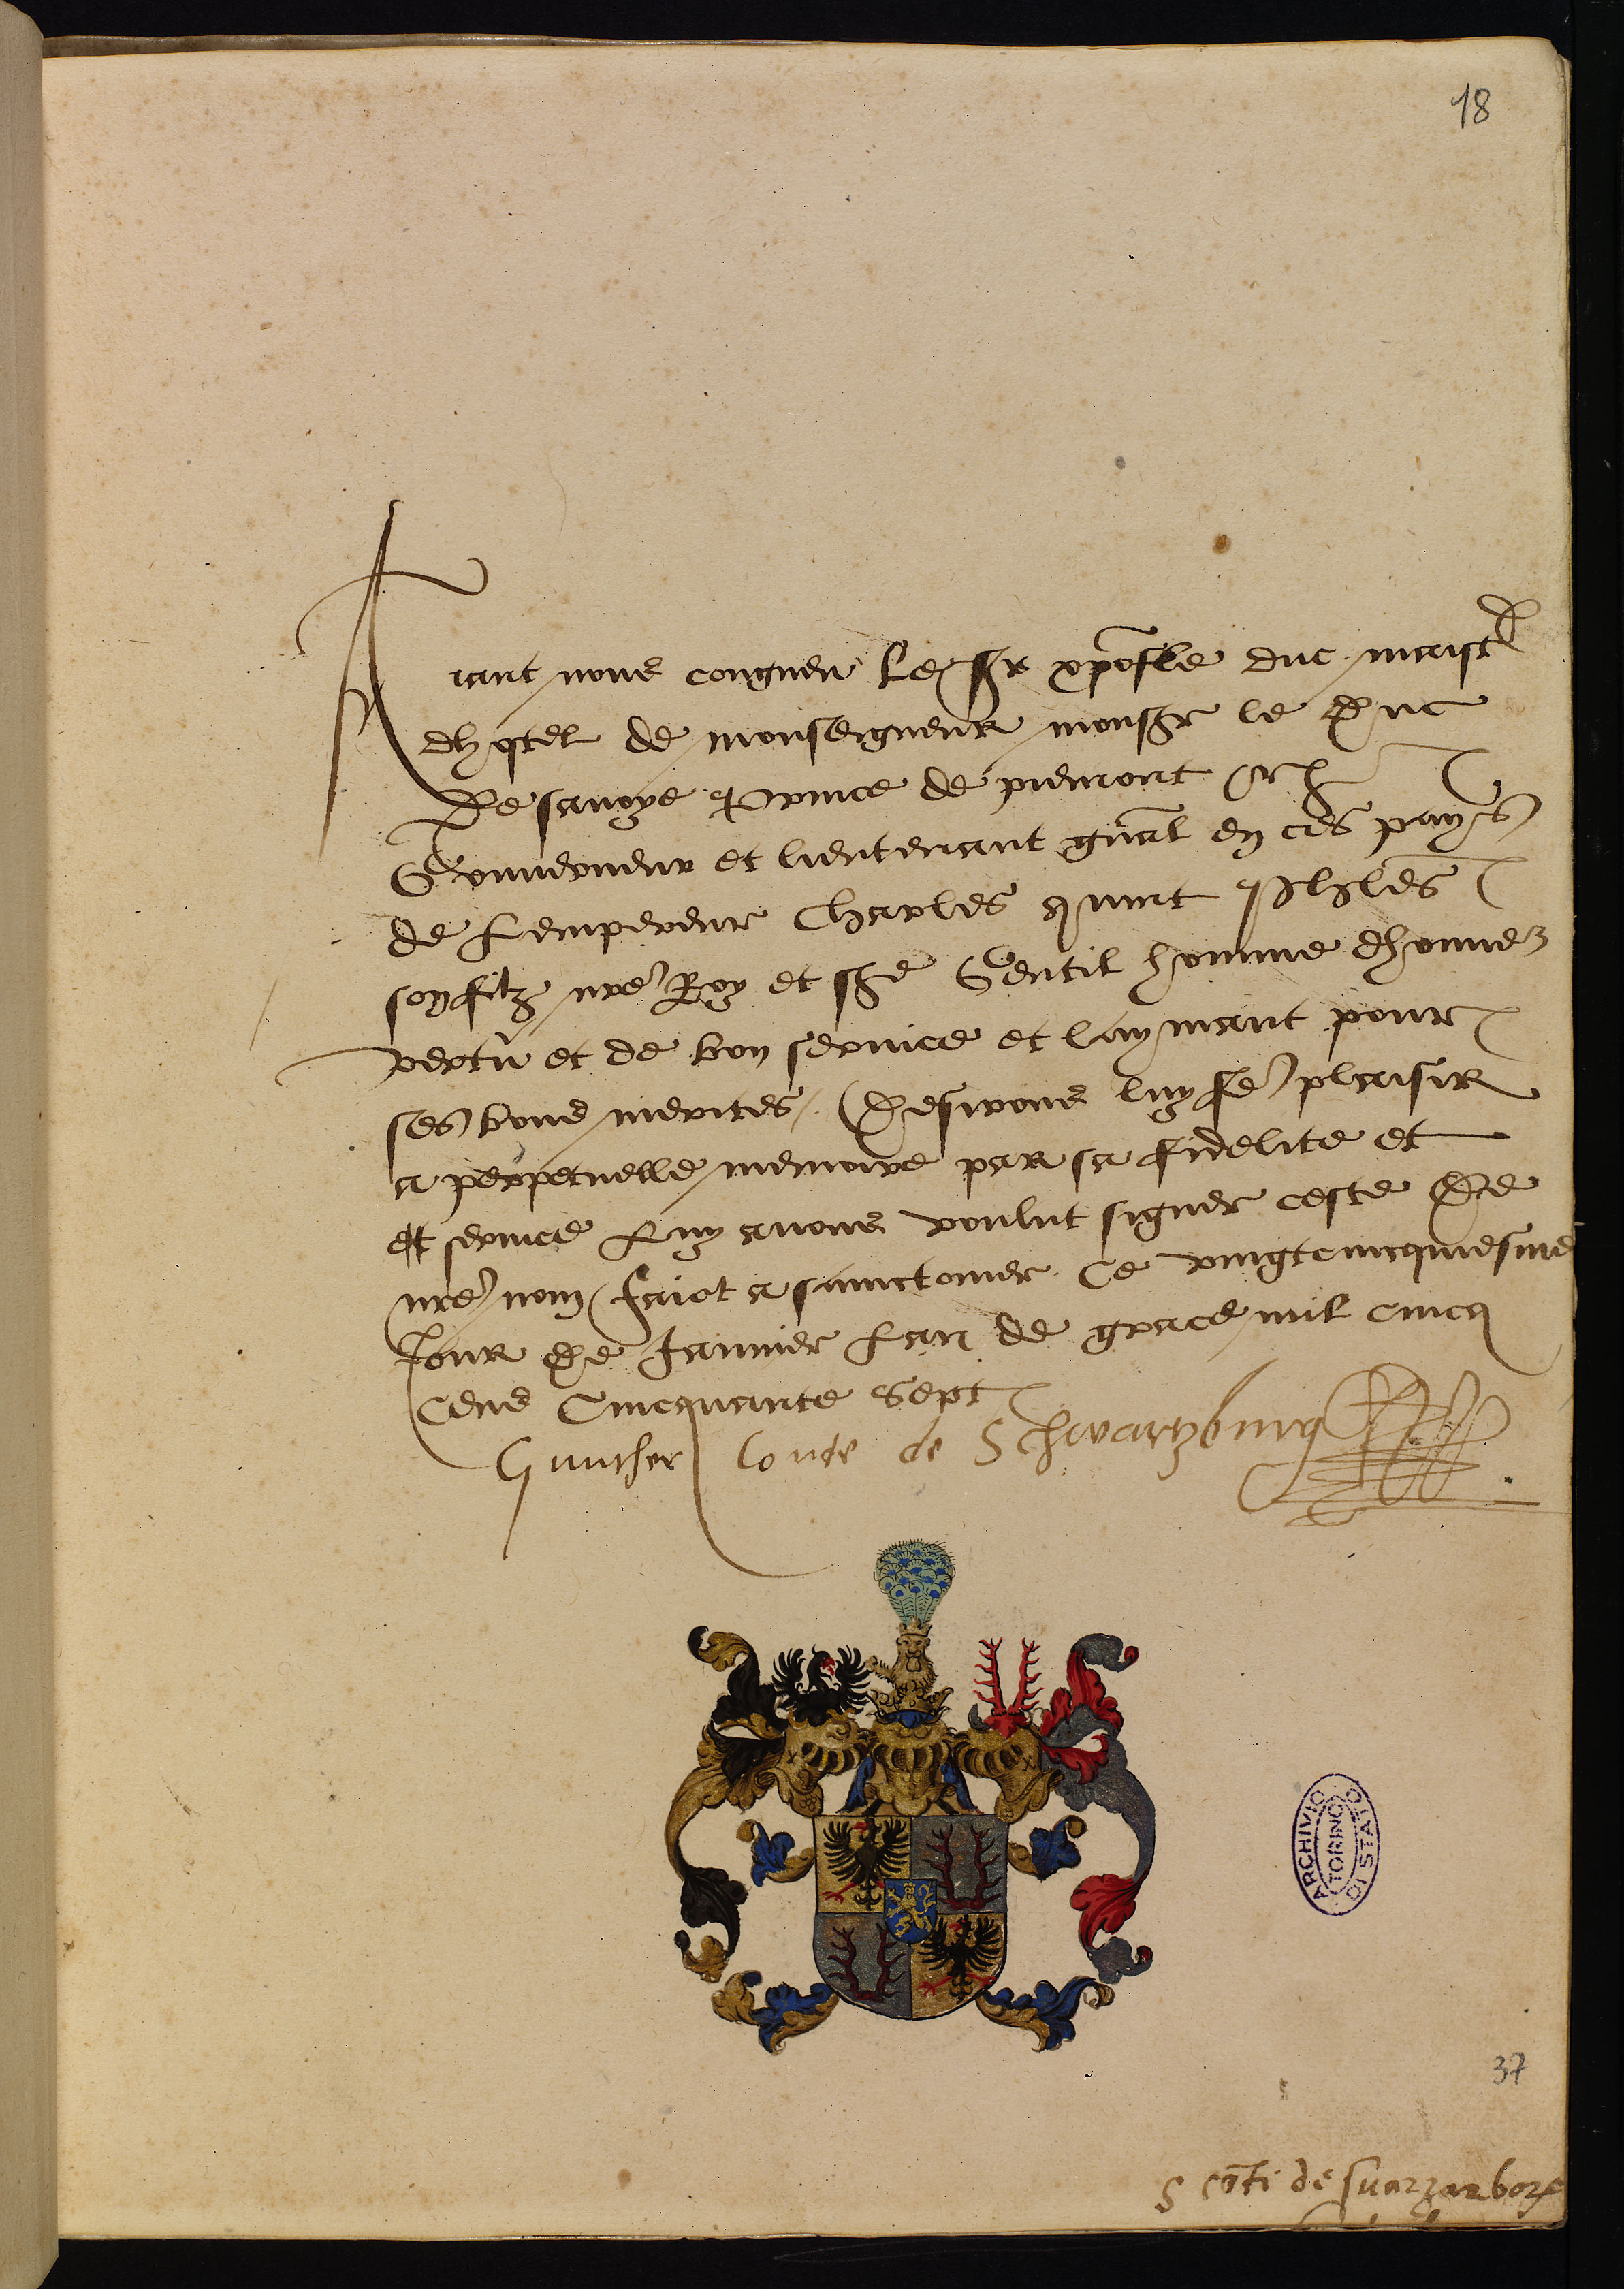 18
Aiant nous congneu Le sr xpõfle duc maistre
dhostel de monseigneur monsr le Duc
De sauoye Prince de piemont etc
Gouuerneur et lieutenant gnãal en ces pays
de Lempereur Charles quint
son filz nre Roy et sre Gentil homme dhonneur
vertu et de bon seruice et laymant pour
ses bons merites / Desirons luy fe plaisir
a perpetuelle memoire par sa fidelite et
et seruice Luy auons voulut signer ceste De
nre nom / faict a sainctomer Ce vingtcincquiesme
Jour De Januier Lan de grace mil cincq
Cens Cincquante Sept
Gunther Conte de Schwartzburg
ARCHIVIO DI STATO
TORINO
37
cõti de suarzanborg